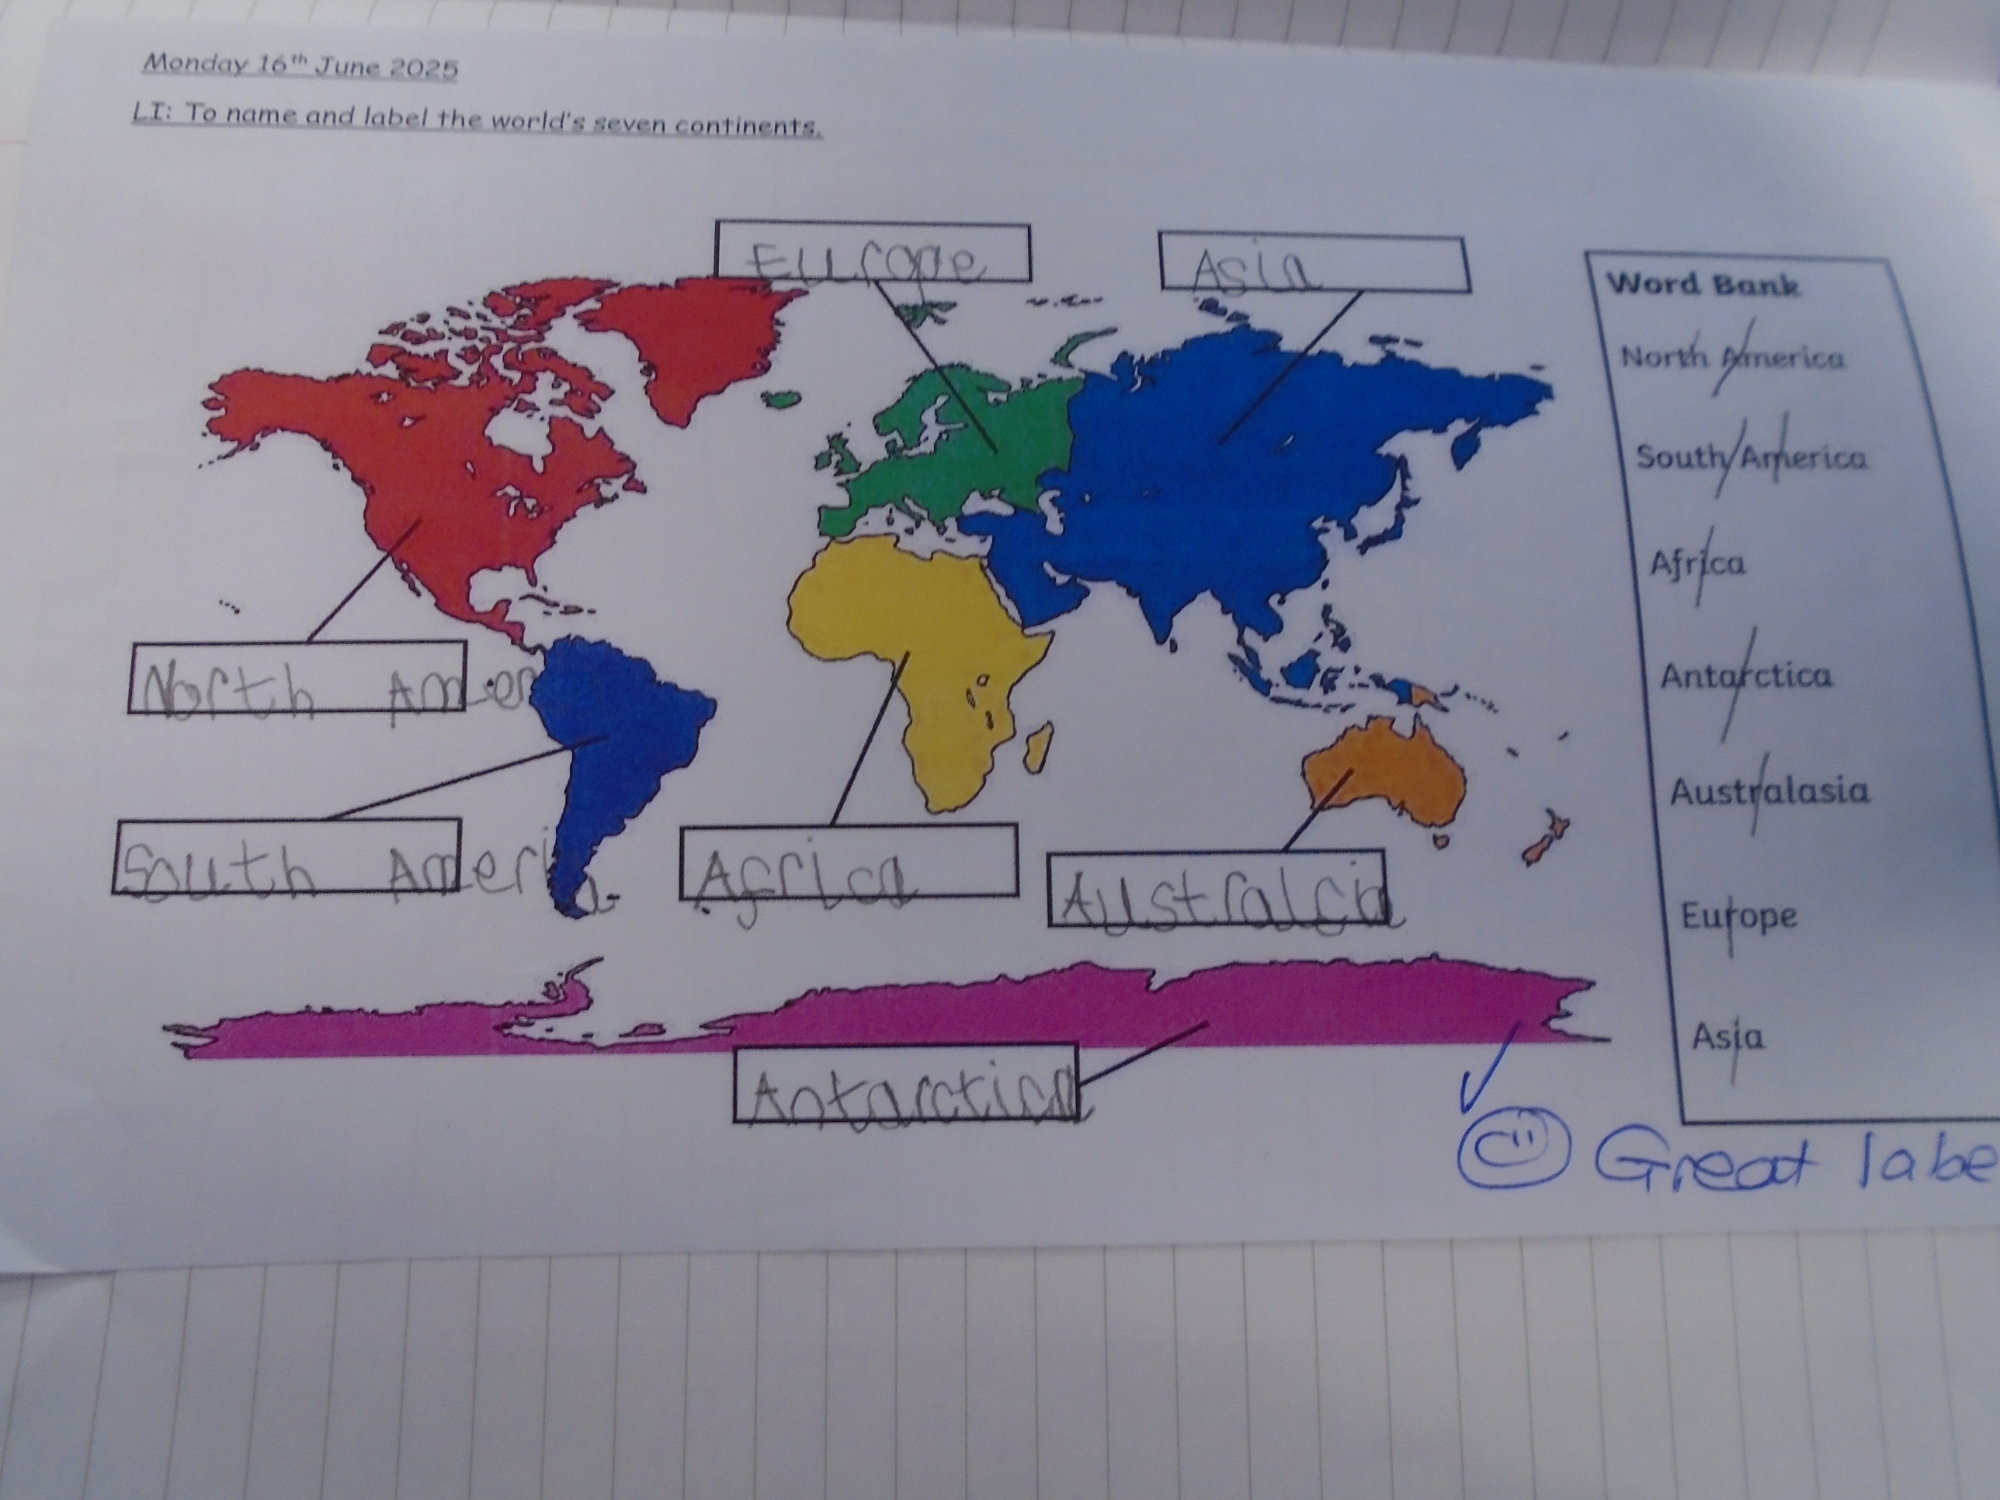 Monday 16th June 2025
LI: To name and label the world's seven continents.
Europe
Asia
North Amer
South Ameri a
Africa
Antarctica
Word Bank
North America
South America
Africa
Antarctica
Australasia
Europe
Asia
Great labe